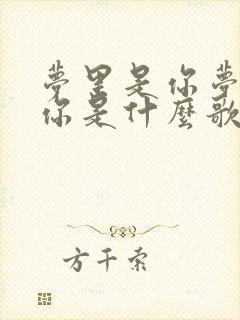 夢里是你夢
你是什麼歌
方千索